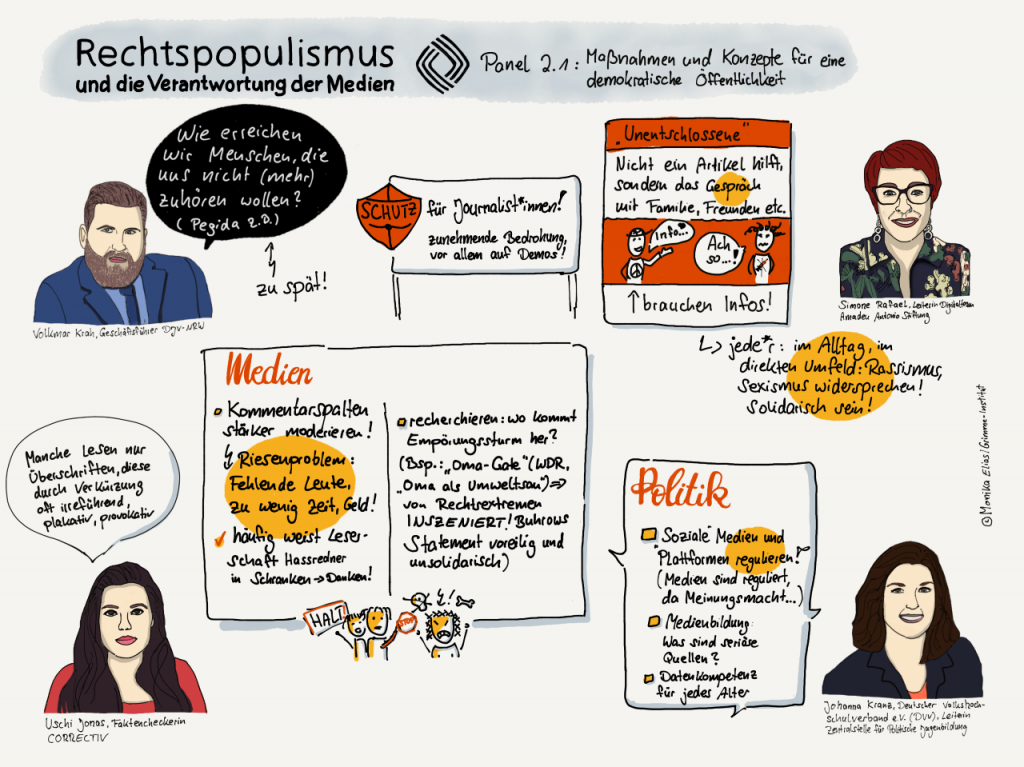 Rechtspopulismus
und die Verantwortung der Medien
Panel 2.1: Maßnahmen und Konzepte für eine
demokratische Öffentlichkeit
Wie erreichen
wir Menschen, die
uns nicht (mehr)
zuhören wollen?
(Pegida z.B.)
zu spät!
Volkmar Krah, Geschäftsführer DJV-NRW
SCHUTZ
für Journalist*innen!
zunehmende Bedrohung,
vor allem auf Demos!
"Unentschlossene"
Nicht ein Artikel hilft,
sondern das Gespräch
mit Familie, Freunden etc.
Info...
Ach
so...!
brauchen Infos!
Simone Rafael, Leiterin Digitalteam
Amadeu Antonio Stiftung
jede*r: im Alltag, im
direkten Umfeld: Rassismus,
Sexismus widersprechen!
Solidarisch sein!
©Monika Elias/Grimme-Institut
Manche lesen nur
Überschriften, diese
durch Verkürzung
oft irreführend,
plakativ, provokativ
Uschi Jonas, Faktencheckerin
CORRECTIV
Medien
Kommentarspalten
stärker moderieren!
Riesenproblem:
Fehlende Leute,
zu wenig Zeit, Geld!
häufig weist Leser-
schaft Hassredner
in Schranken → Danken!
recherchieren: wo kommt
Empörungssturm her?
(Bsp.: „Oma-Gate" (WDR,
„Oma als Umweltsau") ⇒
von Rechtsextremen
INSZENIERT! Buhrows
Statement voreilig und
unsolidarisch)
HALT
STOP
!
Politik
"Soziale" Medien und
Plattformen regulieren!
(Medien sind reguliert,
da Meinungsmacht...)
Medienbildung:
Was sind seriöse
Quellen?
Datenkompetenz
für jedes Alter
Johanna Kranz, Deutscher Volkshoch-
schulverband e.V. (DVV), Leiterin
Zentralstelle für Politische Jugendbildung